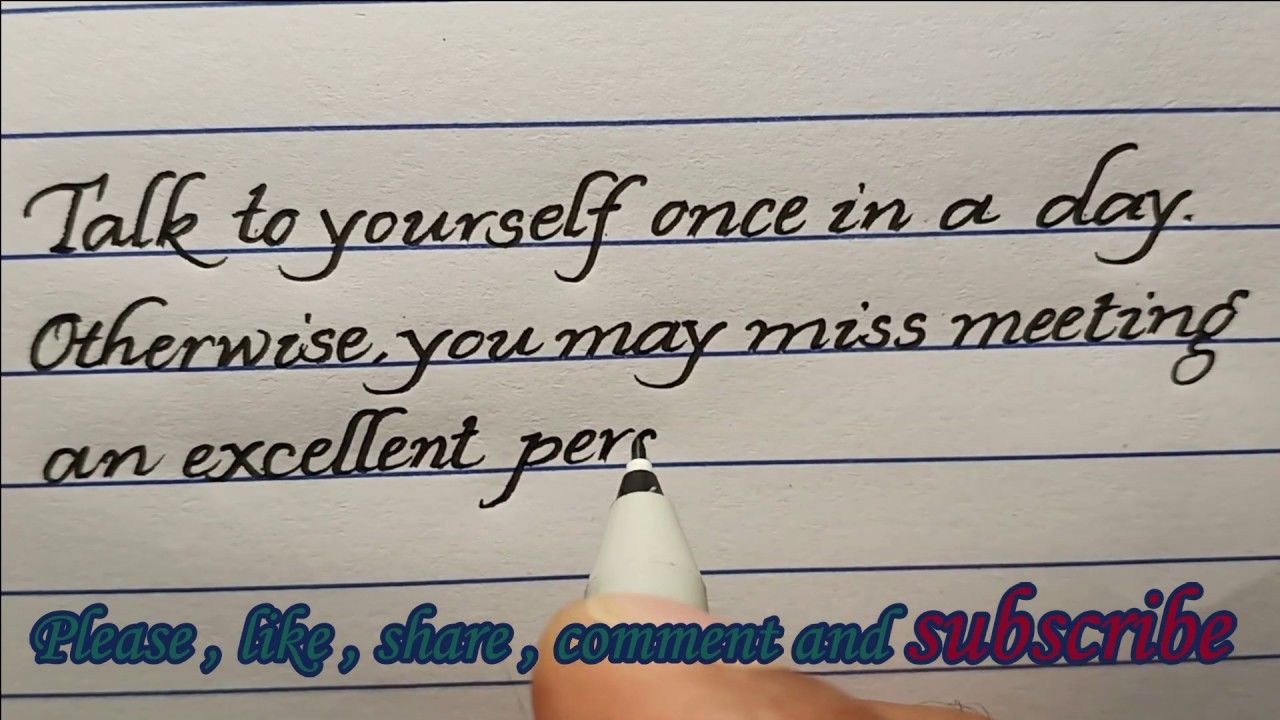 Talk to yourself once in a day.
Otherwise, you may miss meeting
an excellent pers
Please, like, share, comment and subscribe